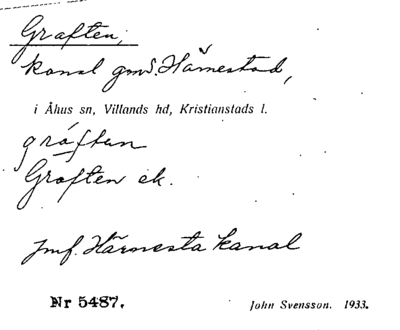 Graften,
kanal gm S. Härnestad,
i Åhus sn, Villands hd, Kristianstads l.
gráftan
Graften ek.
Jmf. Härnesta kanal
Nr 5487. John Svensson. 1933.